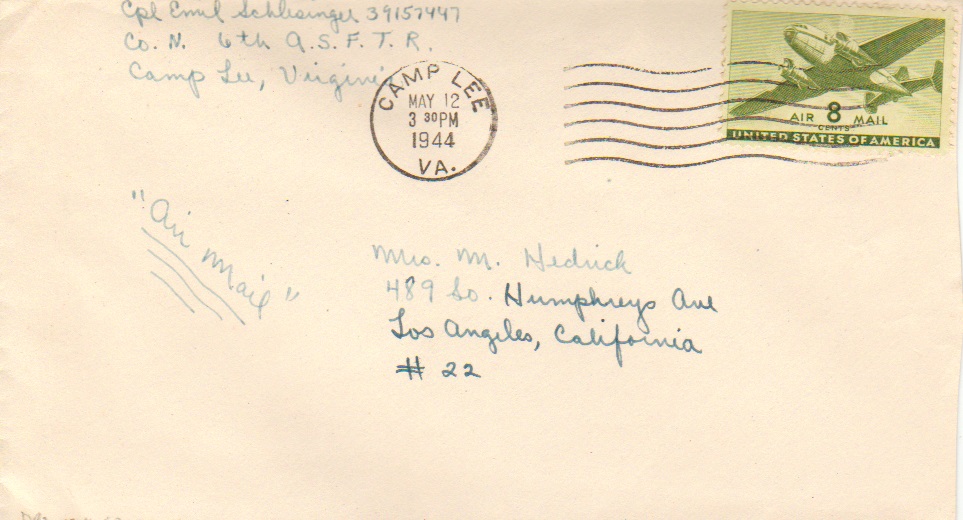 Cpl Emil Schlesinger 39157447
Co. N. 6th A.S.F.T.R.
Camp Lee, Virginia
CAMP LEE
MAY 12
3 30PM
1944
VA.
AIR 8 MAIL
CENTS
UNITED STATES OF AMERICA
"Air Mail"
Mrs. M. Hedrick
489 So. Humphreys Ave
Los Angeles, California
# 22